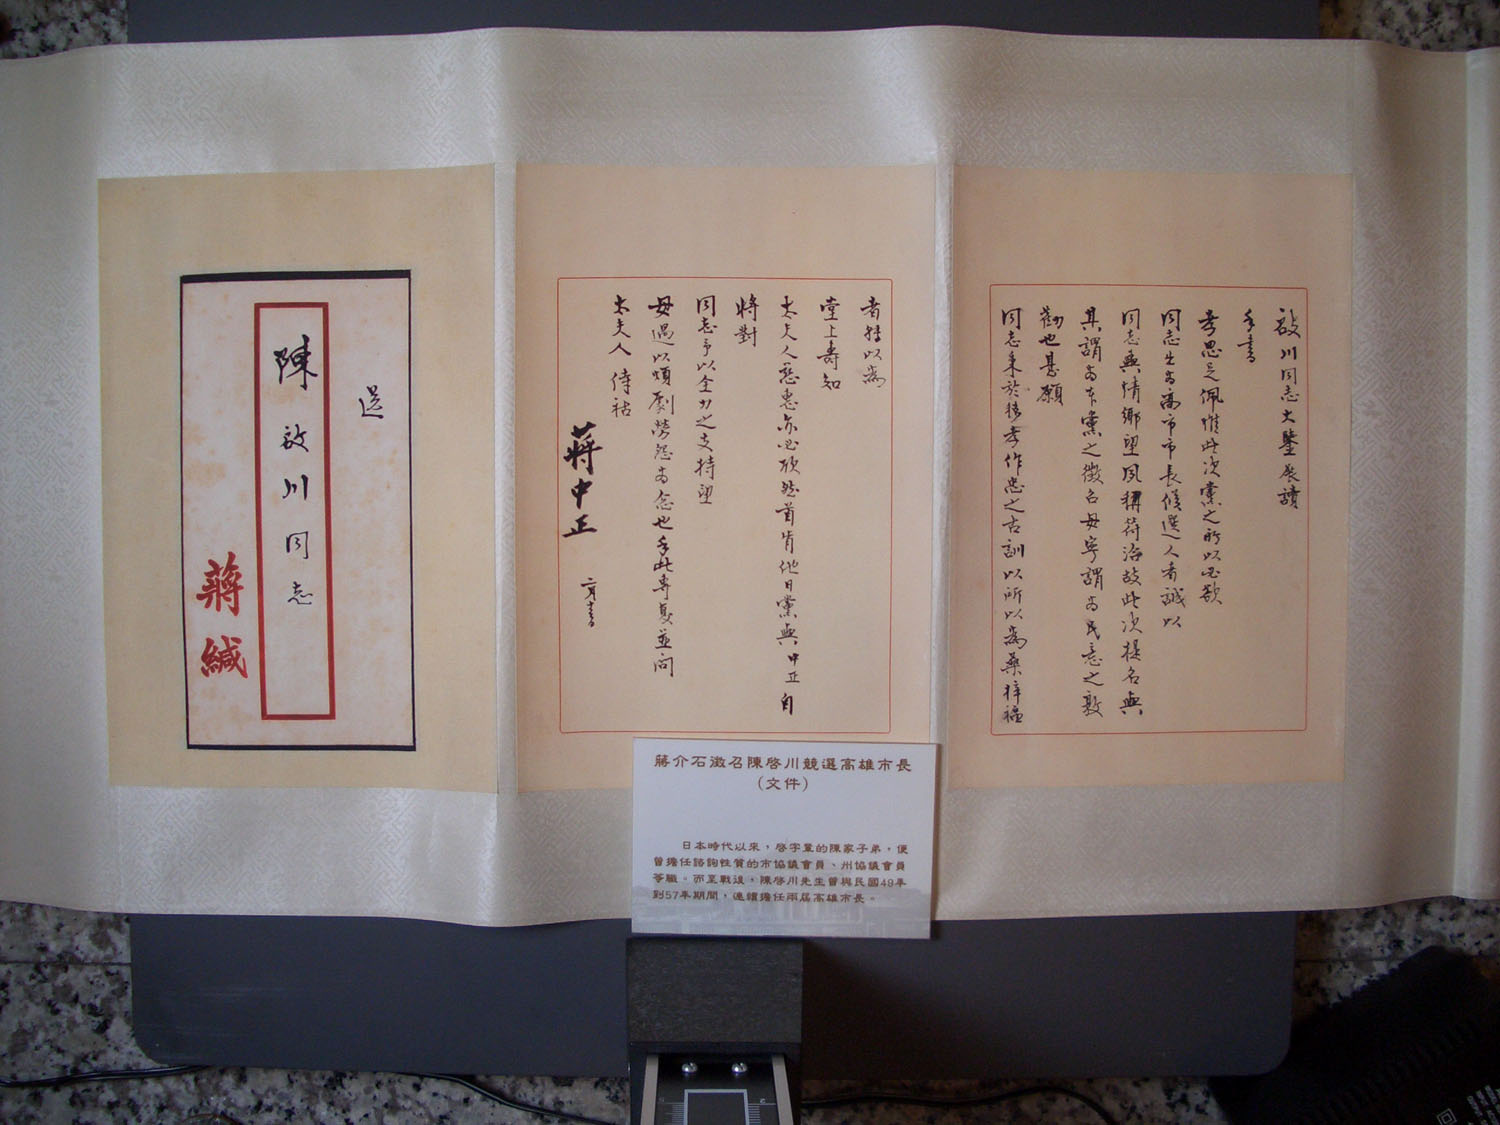 啟川同志大鑒展讀
手書
孝思足佩惟此次黨之所以必欲
同志出為高市市長候選人者誠以
同志輿情鄉望夙稱符洽故此次提名與
其謂為本黨之徵召毋寧謂為民意之敦
勸也甚願
同志秉於移孝作忠之古訓以所以為桑梓福
者特以為
堂上壽知
太夫人慈惠亦必欣然首肯他日黨與中正自
將對
同志予以全力之支持望
毋過以煩劇勞怨為念也手此專复並問
太夫人侍祜
蔣中正
送
陳啟川同志
蔣緘
蔣介石徵召陳啓川競選高雄市長
（文件）
日本時代以來，啓字輩的陳家子弟，便
曾擔任諮詢性質的市協議會員、州協議會員
等職。而至戰後，陳啓川先生曾與民國49年
到57年期間，連續擔任兩屆高雄市長。